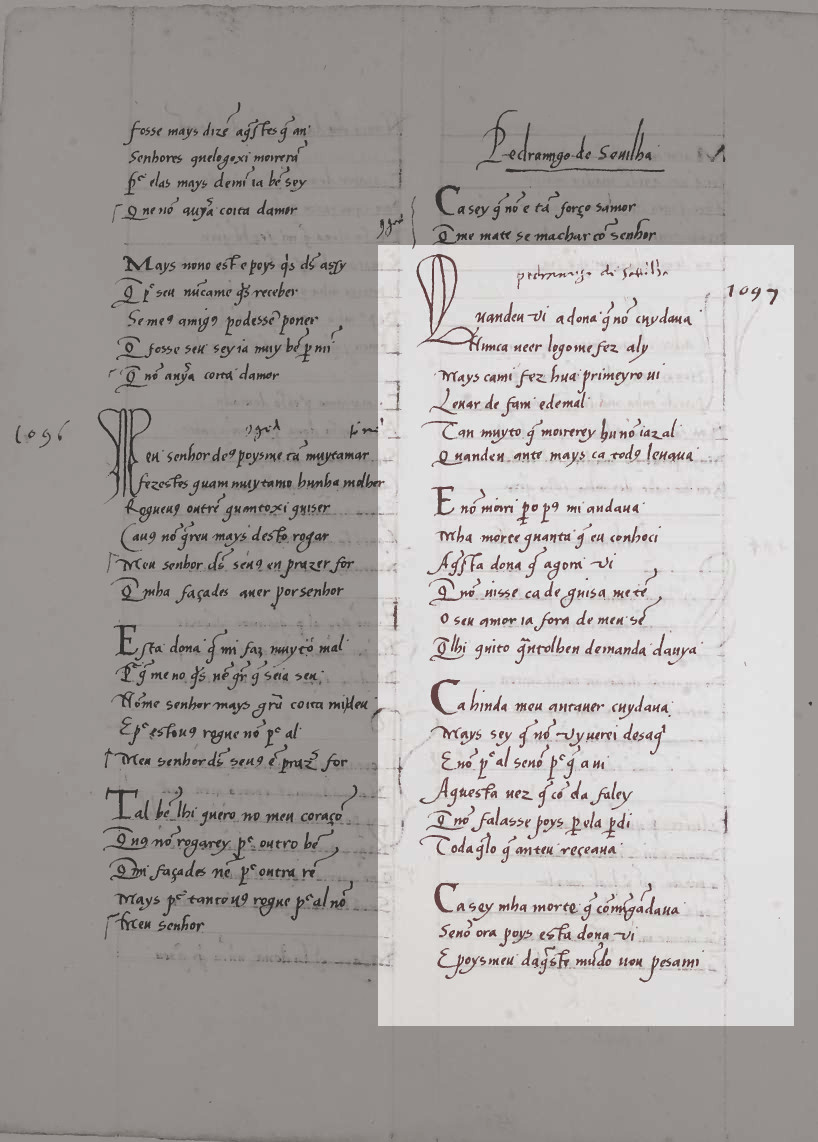 fosse mays dizẽ aq̃stes q̃ an
Senhores quelogoxi moirerã
p̃ elas mays demi ia bẽ sey
Que nõ auỹa coita damor
Mays nono est e poys q̃s ds̃ assy
Q̃ pͤ seu nũcame q̃s receber
Seme9 amig9 podessẽ poner
Q̃ fosse seu seyia muy bẽ p̱ mĩ
Q̃ nõ auỹa coita damor
1096
Meu senhor de9 poysme tã muytamar
fezestes quam muytamo hunha molher
Rogueu9 outrẽ quantoxi quiser
Cau9 nõ q̃reu mays desto rogar
Meu senhor ds̃ seu9 en prazer for
Q̃ mha façades auer por senhor
Esta dona q̃ mi faz muytõ mal
Pͤ q̃ me no q̃s nẽ q̃r q̃ seia seu
Nõme senhor mays grã coita mideu
E pͤ estou9 rogue nõ pͤ al
Meu senhor ds̃ seu9 ẽ prazẽ for
Tal bẽ lhi quero no meu coraçõ
Q̃ u9 nõ rogarey pͤ outro bẽ
Q̃ mi façades nẽ pͤ outra rẽ
Mays pͤ tanto u9 rogue pͤ al nõ
Meu senhor
Pedramigo de Seuilha
Ca sey q̃ nõ e tã forço samor
Q̃ me mate se machar cõ senhor
pedramigo de seuilha
1097
Quandeu vi a dona q̃ nõ cuydaua
Nunca ueer logome fez aly
Mays cami fez hũa primeyro ui
Leuar de fam edemal
Tan muyto q̃ moirerey hu nõ iaz al
Quandeu ante mays ca tod9 leuaua
E nõ moiri p̱o p9 mi andaua
Mha morte quanta q̃ eu conhoci
Aq̃sta dona q̃ agora vi
Q̃ nõ uisse ca de guisa me tẽ
O seu amor ia fora de meu sẽ
Q̃ lhi quito q̃ntolhen demanda dauya
Ca hinda meu antauer cuydaua
Mays sey q̃ nõ vyuerei desaq̃
E nõ pͤ al senõ pͤ q̃ a ui
Aquesta uez q̃ cõ da faley
Q̃ nõ falasse poys p̱ ela p̱di
Todaq̃lo q̃ anteu reçeaua
Ca sey mha morte q̃ cõmigãdaua
Senõ ora poys esta dona vi
E poysmeu daq̃ste mũdo uou pesami